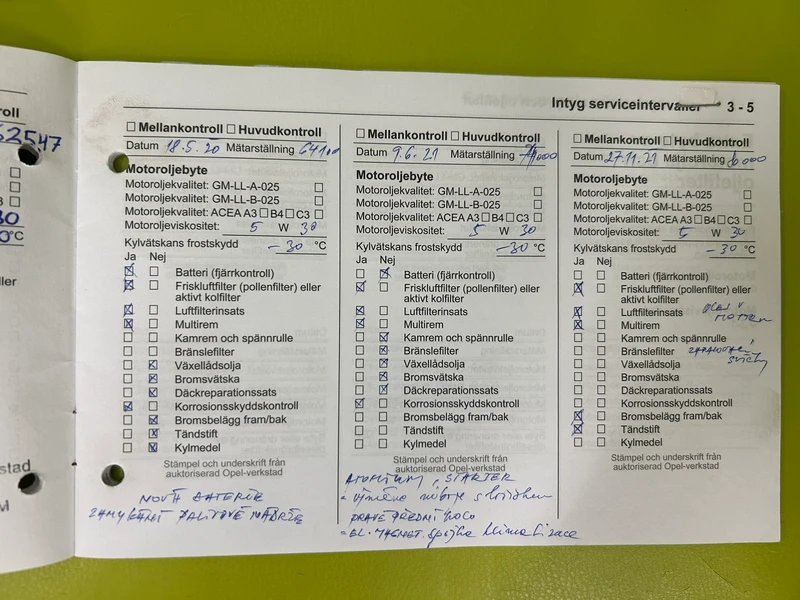 roll
62547
Intyg serviceintervaller 3 - 5
Mellankontroll Huvudkontroll
Datum 18.5.20 Mätarställning
Motoroljebyte
Motoroljekvalitet: GM-LL-A-025
Motoroljekvalitet: GM-LL-B-025
Motoroljekvalitet: ACEA A3 B4 C3
Motoroljeviskositet: 5 W 30
Kylvätskans frostskydd -30 °C
Ja Nej
Batteri (fjärrkontroll)
Friskluftfilter (pollenfilter) eller
aktivt kolfilter
Luftfilterinsats
Multirem
Kamrem och spännrulle
Bränslefilter
Växellådsolja
Bromsvätska
Däckreparationssats
Korrosionsskyddskontroll
Bromsbelägg fram/bak
Tändstift
Kylmedel
Stämpel och underskrift från
auktoriserad Opel-verkstad
NOVÁ BATERIE
ZAMYKÁNÍ PALIVOVÉ NÁDRŽE
Mellankontroll Huvudkontroll
Datum 9.6.21 Mätarställning
Motoroljebyte
Motoroljekvalitet: GM-LL-A-025
Motoroljekvalitet: GM-LL-B-025
Motoroljekvalitet: ACEA A3 B4 C3
Motoroljeviskositet: 5 W 30
Kylvätskans frostskydd -30 °C
Ja Nej
Batteri (fjärrkontroll)
Friskluftfilter (pollenfilter) eller
aktivt kolfilter
Luftfilterinsats
Multirem
Kamrem och spännrulle
Bränslefilter
Växellådsolja
Bromsvätska
Däckreparationssats
Korrosionsskyddskontroll
Bromsbelägg fram/bak
Tändstift
Kylmedel
Stämpel och underskrift från
auktoriserad Opel-verkstad
, STARTER
výměna náboje s ložiskem
PRAVÉ PŘEDNÍ KOLO
spojka klimatizace
Mellankontroll Huvudkontroll
Datum 27.11.21 Mätarställning
Motoroljebyte
Motoroljekvalitet: GM-LL-A-025
Motoroljekvalitet: GM-LL-B-025
Motoroljekvalitet: ACEA A3 B4 C3
Motoroljeviskositet: 5 W 30
Kylvätskans frostskydd -30 °C
Ja Nej
Batteri (fjärrkontroll)
Friskluftfilter (pollenfilter) eller
aktivt kolfilter
Luftfilterinsats OLEJ V
Multirem MOTORU
Kamrem och spännrulle
Bränslefilter
svíčky
Växellådsolja
Bromsvätska
Däckreparationssats
Korrosionsskyddskontroll
Bromsbelägg fram/bak
Tändstift
Kylmedel
Stämpel och underskrift från
auktoriserad Opel-verkstad